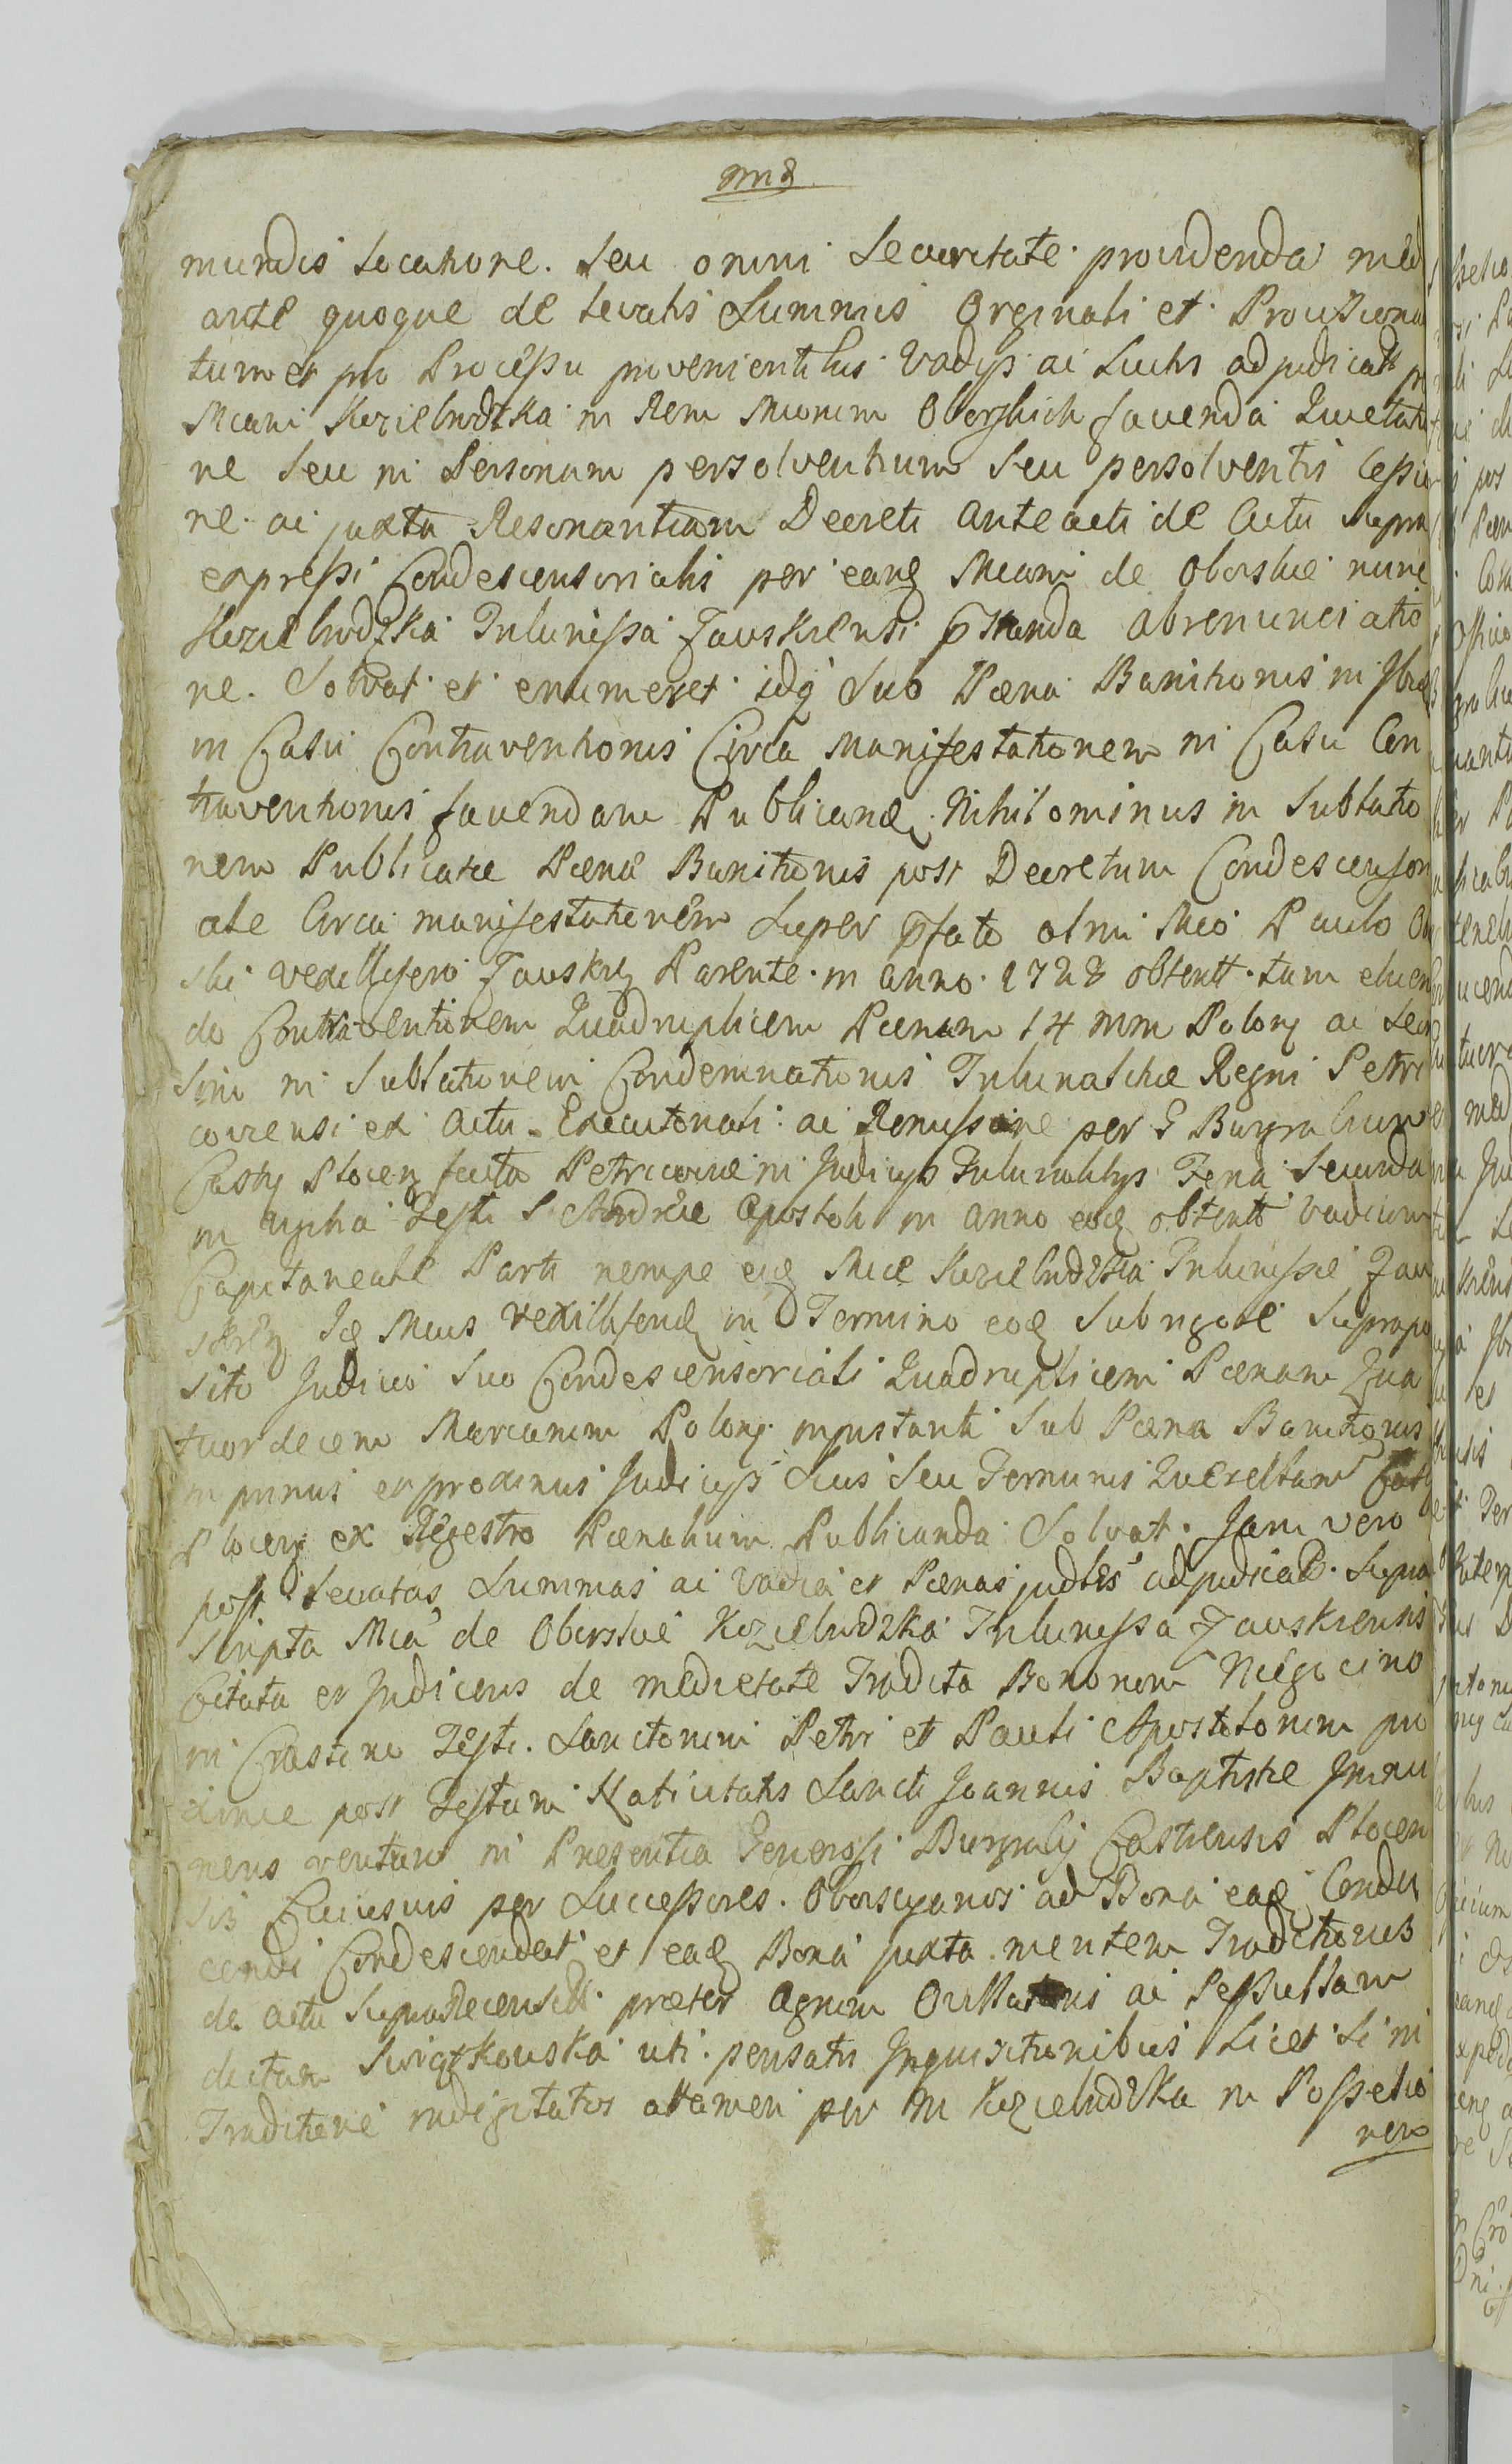 mundis locatione. Seu omni Securitate providenda medi
ante quoque de levatis Summis Orginali et Provisiona
tum et pro Processu provenientibus Vadys ac Luitis adjudicatt
Mcam Koziebrodzka in Rem Mcorum Oborskich favenda Quietatio
ne Seu in Personam persolventium Seu persolventis Cessio
ne. ac juxta Resonantiam Decreti anteacti de Actu Supra
expressi Condescensorialis per eanq Mcam de Oborskie nunc
Koziebrodzka Tribunissa Zauskrensi pstanda abrenunciatio
ne. Solvat et enumeret idq Sub Pæna Banitionis in
in Casu Contraventionis Circa Manifestationem in Casu Con
traventionis favendam Publicand. Nihilominus in Sublatio
nem Publicatæ Pænæ Banitionis post Decretum Condescensori
ale Circa manifestationem Super pfato olim Mco Paulo Obor
ski Vexillifero Zauskrz Parente in anno 1728 obtentt. tum eluen
do Contraventionem Quadruplicem Pænam 14 mm Polonq ac
in Sublationem Condemnationis Tribunalitiæ Regni Petri
coviensi ex Actu Executoriali ac Remissione per G Burgrabium
Castrq Plocenq facta Petricoviæ in Judicys Tribunalitys Feria Secunda
in Festi S Andreæ Apostoli in anno eoq obtento Vadium
Capitaneale Parti nempe eiq Mcæ Koziebrodzka Tribunissæ Zau
skrenq Mcus Vexilliferiq in Termino eoq Sub rigore Suprapo
sito Judicio Suo Condescensoriali Quadruplicem Pænam Qua
tuordecem Marcarum Polonq injustanti Sub Pæna Banitionis
in primis et proximis Judicys Seu Terminis Querellarum Castrq
Plocenq ex Regestro Pænalium Publicanda Solvat. Jam vero
post levatas Summas ac Vadia et Pænas judtes adjudicatt. Supra
Scripta Mca de Oborskie Kozebrodzka Tribunissa Zauskrensis
Citata et Judicens de medietate Tradita Bonorum Niegocino
in Crastino Festi Sanctorum Petri et Pauli Apostolorum pro
xime post Festum Nativitatis Sancti Joannis Baptistæ
nens ventur in Presentia Generosi Burgrabij Castrensis Plocen
sis Cuiusvis per Successores Oborscyanos ad Bona eaq Condu
cendi Condescendat et eaq Bona juxta mentem Traditionis
de actu Supra Recensedi præter Agrum ac
dictam Swiątkowska uti pensatis Inquisitionibus licet Si in
Traditione indigitatos attamen per M Kozebrodzka in Possessio
nem